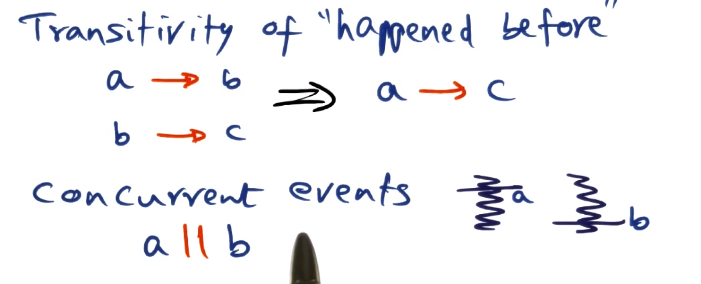 Transitivity of "happened before"
a → b ⇒ a → c
b → c
Concurrent events a b
a || b